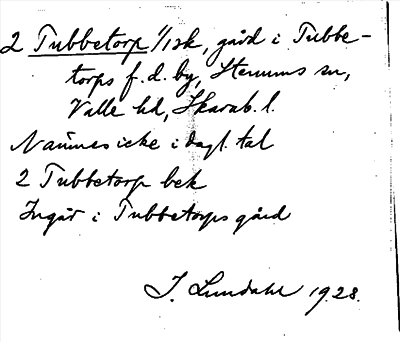 2 Tubbetorp 1/1 sk, gård i Tubbe-
torps f. d. by, Stenums sn,
Valle hd, Skarab. l.
Namnes icke i dagl. tal
2 Tubbetorp bek
Ingår i Tubbetorps gård
I. Lundahl 1928.